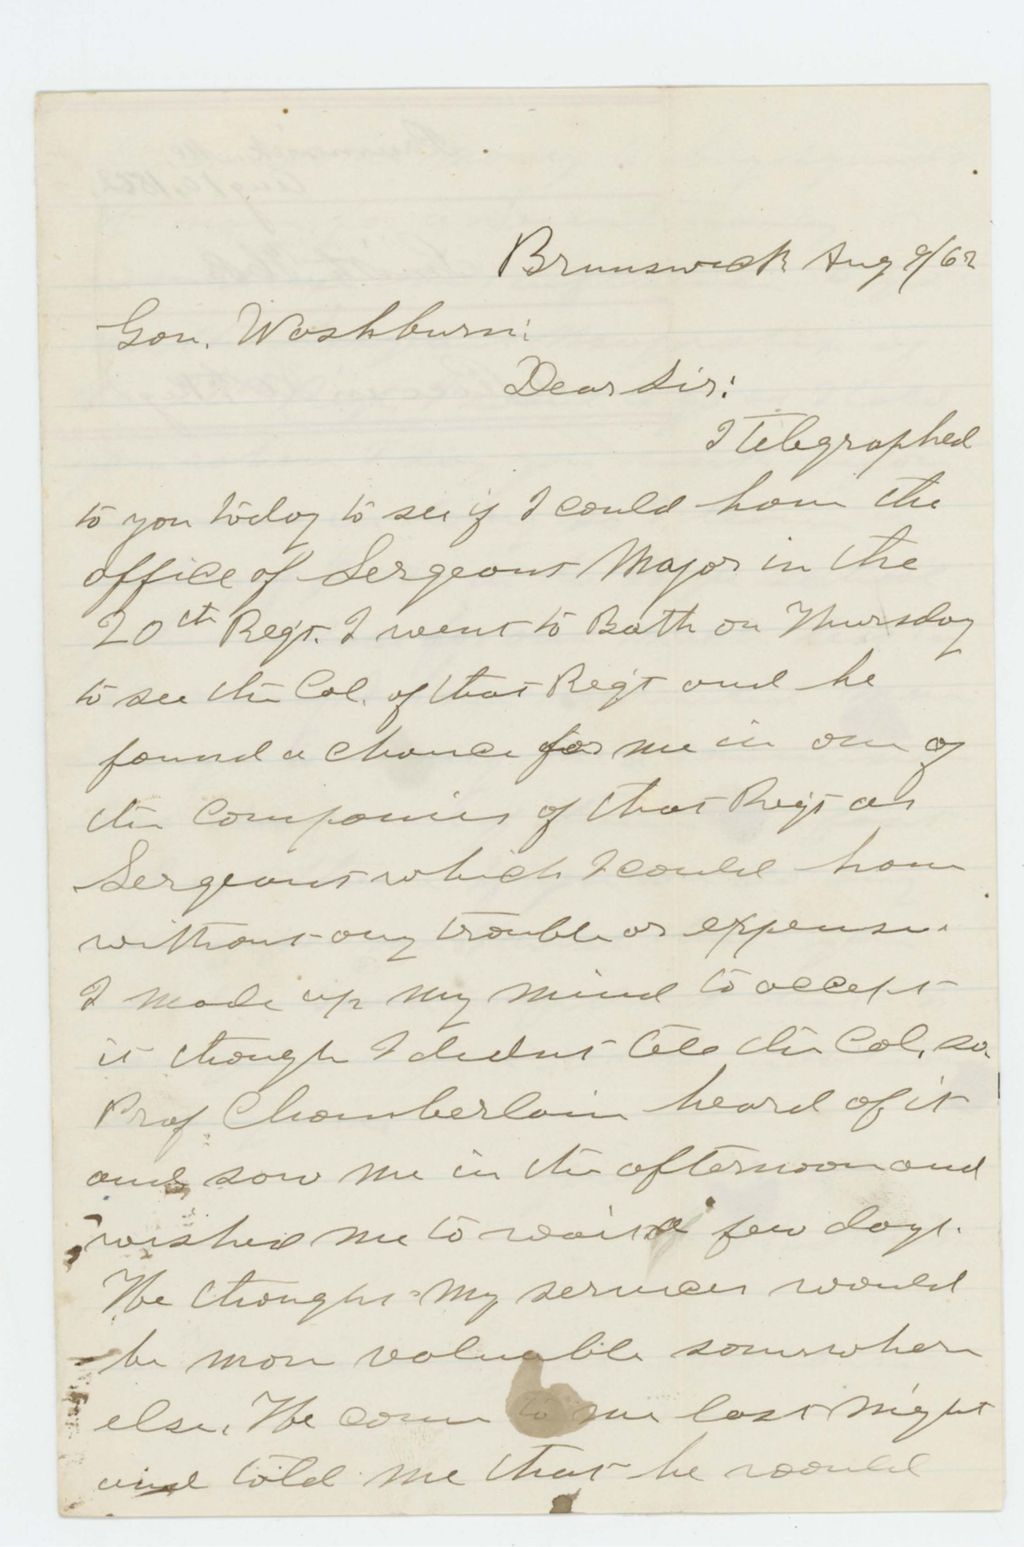 Brunswick Aug 9/62
Gov. Washburn:
Dear Sir:
I telegraphed
to you today to see if I could have the
office of Sergeant Major in the
20th Reg't. I went to Bath on Thursday
to see the Col. of that Reg't and he
found a chance for me in one of
the companies of that Reg't as
Sergeant which I could have
without any trouble or expense.
I made up my mind to accept
it though I didnt tell the Col, so
Prof Chamberlain heard of it
and saw me in the afternoon and
wished me to wait a few days.
He thought my services would
be more valuable somewhere
else. He came to me last night
and told me that he would